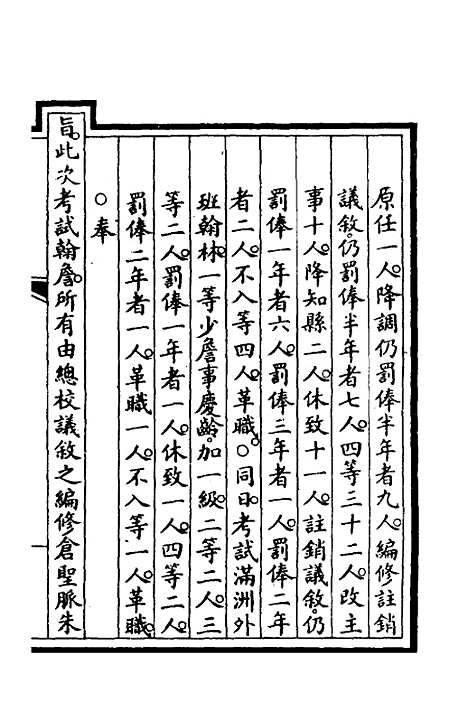 原任一人。降調仍罰俸半年者九人。編修註銷
議敘。仍罰俸半年者七人。四等三十二人。改主
事十人。降知縣二人。休致十一人。註銷議敘。仍
罰俸一年者六人。罰俸三年者一人。罰俸二年
者二人。不入等四人。革職。○同日。考試滿洲外
班翰林。一等少詹事慶齡。加一級。二等二人。三
等二人。罰俸一年者一人。休致一人。四等二人。
罰俸二年者一人。革職一人。不入等一人。革職。
○奉
旨。此次考試翰詹。所有由總校議敘之編修倉聖脈朱